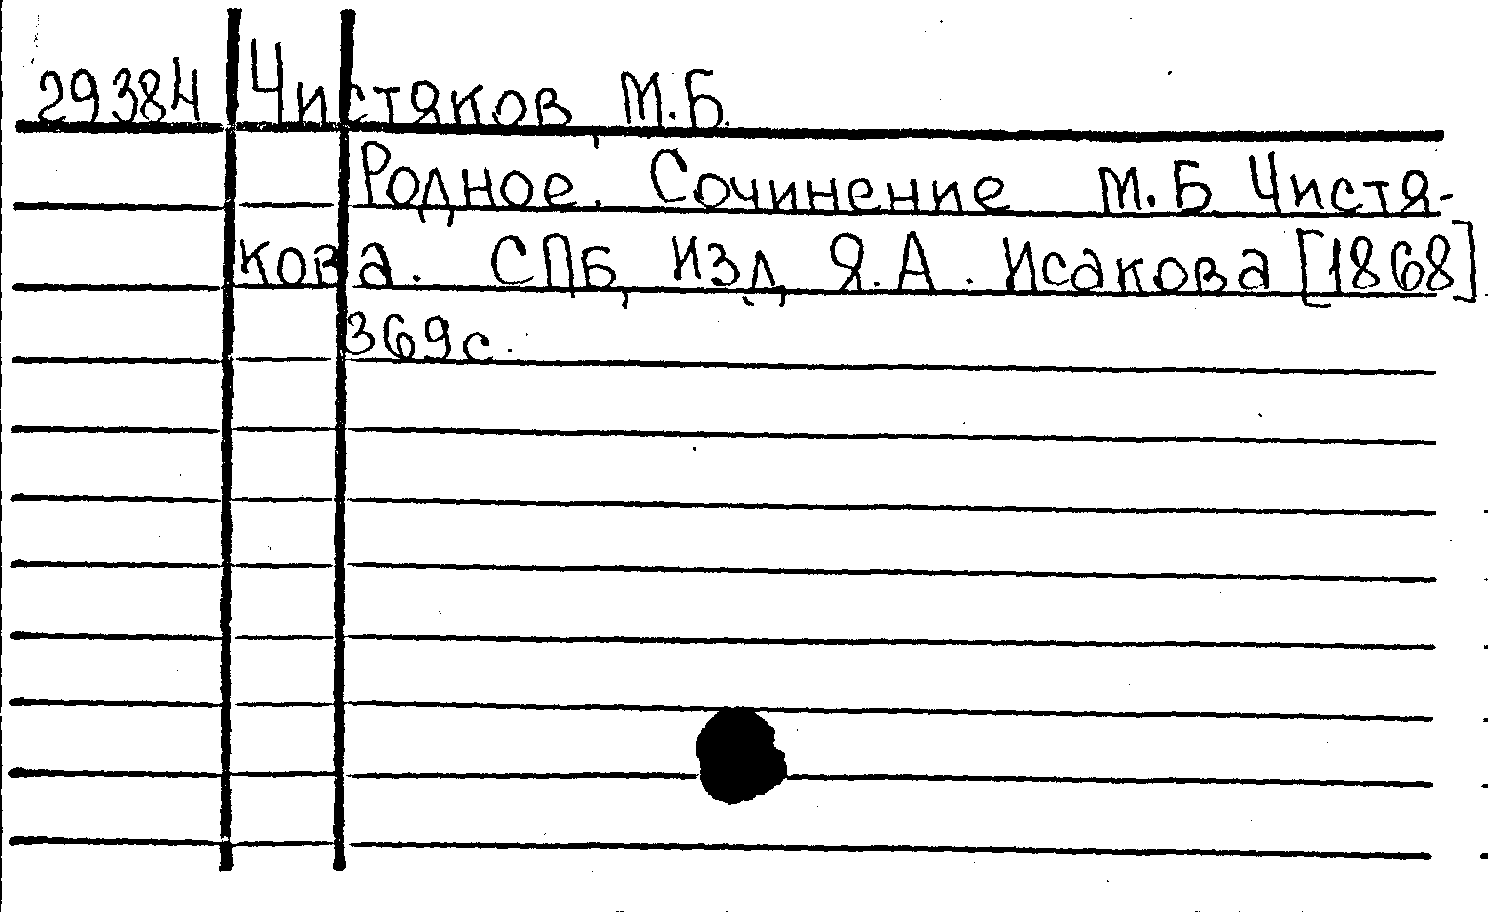 29384 Чистяков, М.Б.
Родное. Сочинение М.Б. Чистя-
кова. СПб, Изд, Я.А. Исакова [1868]
369с.